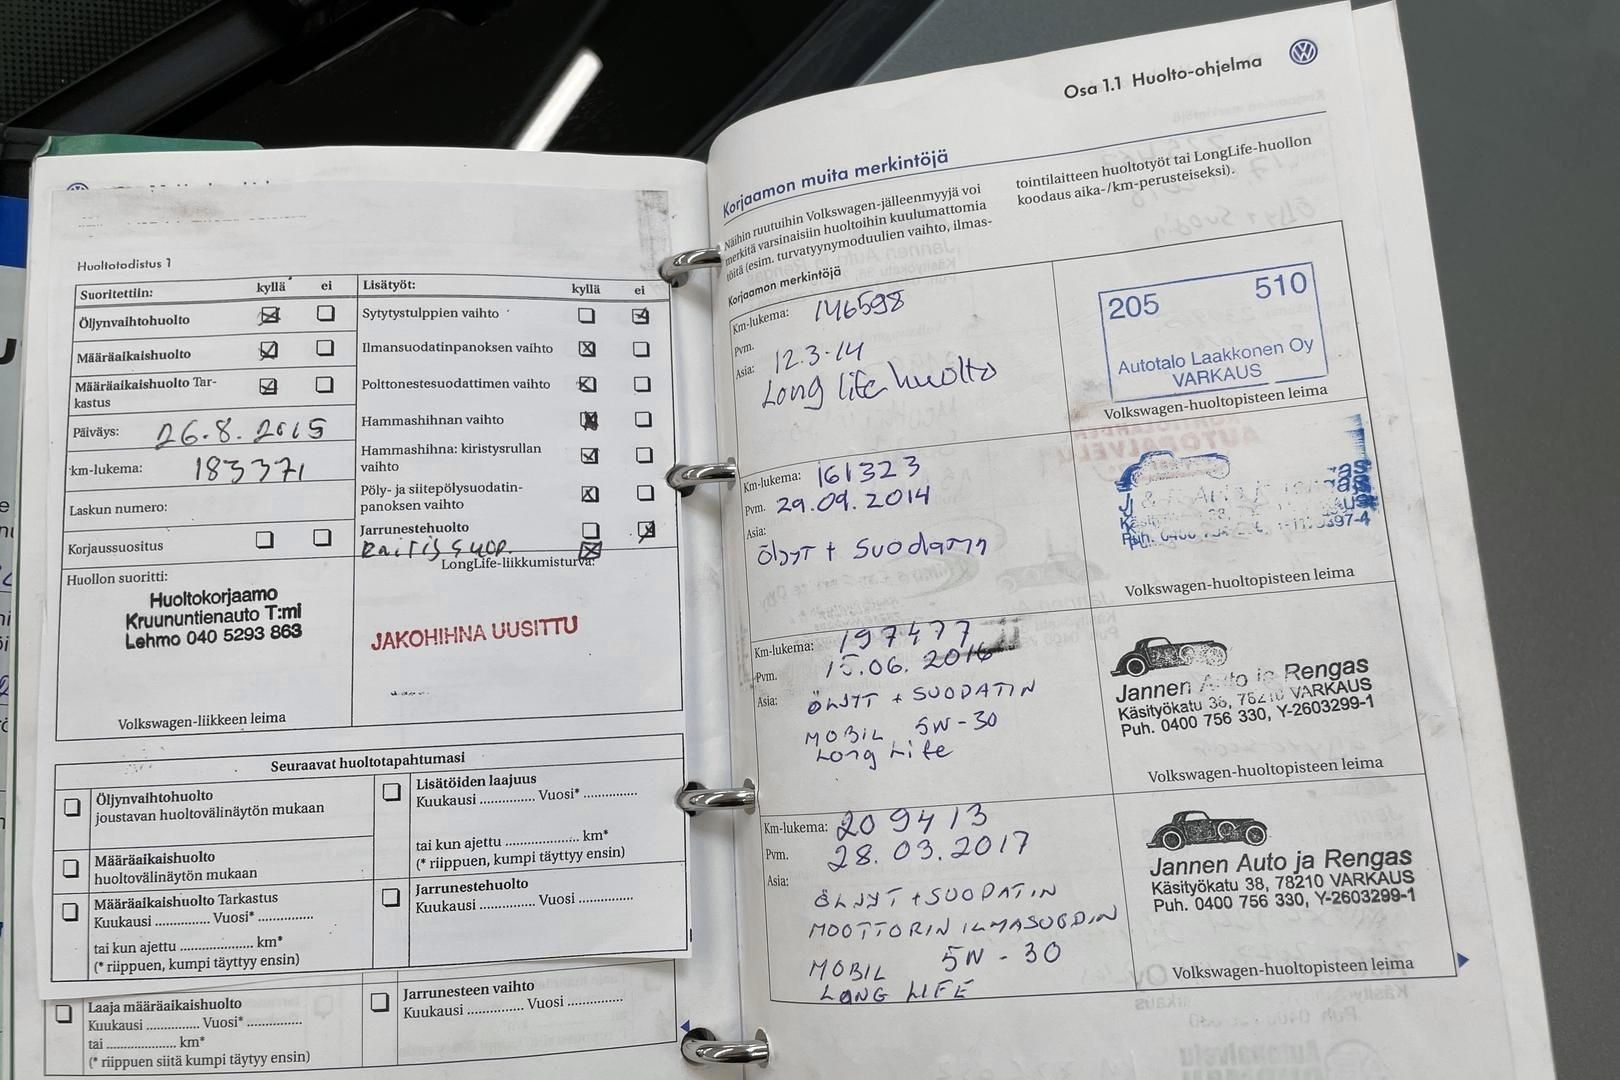 Huoltotodistus 1
Suoritettiin: kyllä ei
Öljynvaihtohuolto
Määräaikaishuolto
Määräaikaishuolto Tar-
kastus
Päiväys: 26.8.2015
km-lukema: 183371
Laskun numero:
Korjaussuositus
Huollon suoritti:
Huoltokorjaamo
Kruununtienauto T:mi
Lehmo 040 5293 863
Volkswagen-liikkeen leima
Lisätyöt: kyllä ei
Sytytystulppien vaihto
Ilmansuodatinpanoksen vaihto
Polttonestesuodattimen vaihto
Hammashihnan vaihto
Hammashihna: kiristysrullan
vaihto
Pöly- ja siitepölysuodatin-
panoksen vaihto
Jarrunestehuolto
Raitis suod.
LongLife-liikkumisturva:
JAKOHIHNA UUSITTU
Seuraavat huoltotapahtumasi
Öljynvaihtohuolto
joustavan huoltovälinäytön mukaan
Määräaikaishuolto
huoltovälinäytön mukaan
Määräaikaishuolto Tarkastus
Kuukausi .............. Vuosi* ..............
tai kun ajettu .................... km*
(* riippuen, kumpi täyttyy ensin)
Lisätöiden laajuus
Kuukausi .............. Vuosi* ..............
tai kun ajettu .................... km*
(* riippuen, kumpi täyttyy ensin)
Jarrunestehuolto
Kuukausi .............. Vuosi ..............
Laaja määräaikaishuolto
Kuukausi .............. Vuosi* ..............
tai .................... km*
(* riippuen siitä kumpi täytyy ensin)
Jarrunesteen vaihto
Kuukausi .............. Vuosi ..............
Osa 1.1 Huolto-ohjelma
Korjaamon muita merkintöjä
Näihin ruutuihin Volkswagen-jälleenmyyjä voi
merkitä varsinaisiin huoltoihin kuulumattomia
töitä (esim. turvatyynymoduulien vaihto, ilmas-
tointilaitteen huoltotyöt tai LongLife-huollon
koodaus aika-/km-perusteiseksi).
Korjaamon merkintöjä
Km-lukema: 146598
Pvm. 12.3-14
Asia: Long life huolto
205 510
Autotalo Laakkonen Oy
VARKAUS
Volkswagen-huoltopisteen leima
Km-lukema: 161323
Pvm. 29.09.2014
Asia:
Öljyt + Suodatin
Volkswagen-huoltopisteen leima
Km-lukema: 197477
Pvm. 15.06.2016
Asia: ÖLJYT + SUODATIN
MOBIL 5W-30
Long Life
Jannen Auto ja Rengas
Käsityökatu 38, 78210 VARKAUS
Puh. 0400 756 330, Y-2603299-1
Volkswagen-huoltopisteen leima
Km-lukema: 209413
Pvm. 28.03.2017
Asia:
ÖLJYT + SUODATIN
MOOTTORIN ILMASUODIN
MOBIL 5W-30
LONG LIFE
Jannen Auto ja Rengas
Käsityökatu 38, 78210 VARKAUS
Puh. 0400 756 330, Y-2603299-1
Volkswagen-huoltopisteen leima